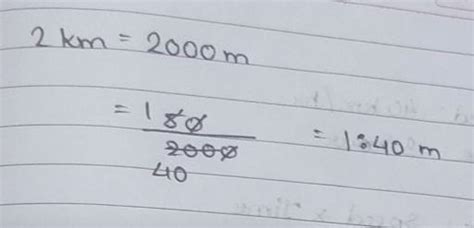 2 km = 2000 m
= 1 50
2000
= 1:40 m
40